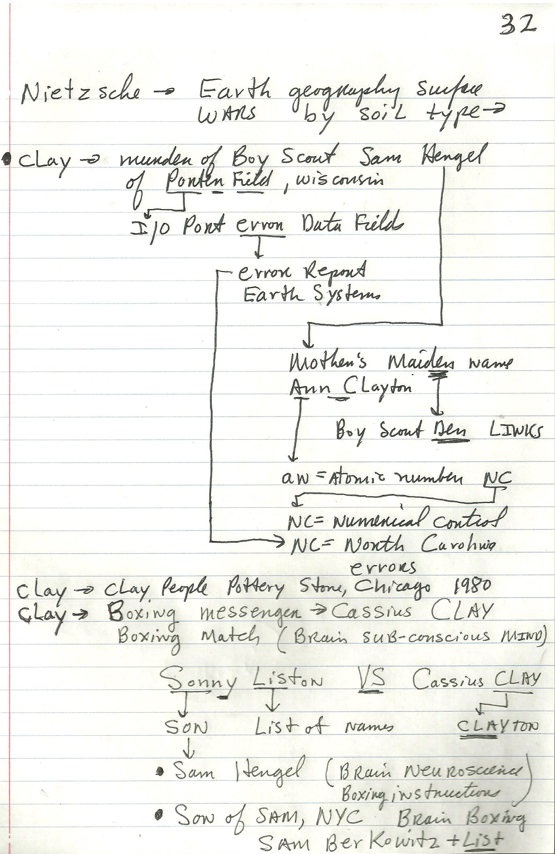 32
Nietzsche → Earth geography surface
WARS by soil type →
• Clay → murder of Boy Scout Sam Hengel
of Porter Field, wisconsin
I/O Port error Data Fields
error Report
Earth Systems
Mother's Maiden name
Ann Clayton
Boy Scout Den LINKS
an = Atomic number NC
NC = Numerical control
NC = North Carolina
errors
Clay → Clay People Pottery Store, Chicago 1980
Clay → Boxing messenger → Cassius CLAY
Boxing Match (Brain SUB-conscious MIND)
Sonny Liston VS Cassius CLAY
SON List of names CLAYTON
• Sam Hengel (Brain Neuroscience
Boxing instructions)
• Son of SAM, NYC Brain Boxing
SAM BerKowitz + List